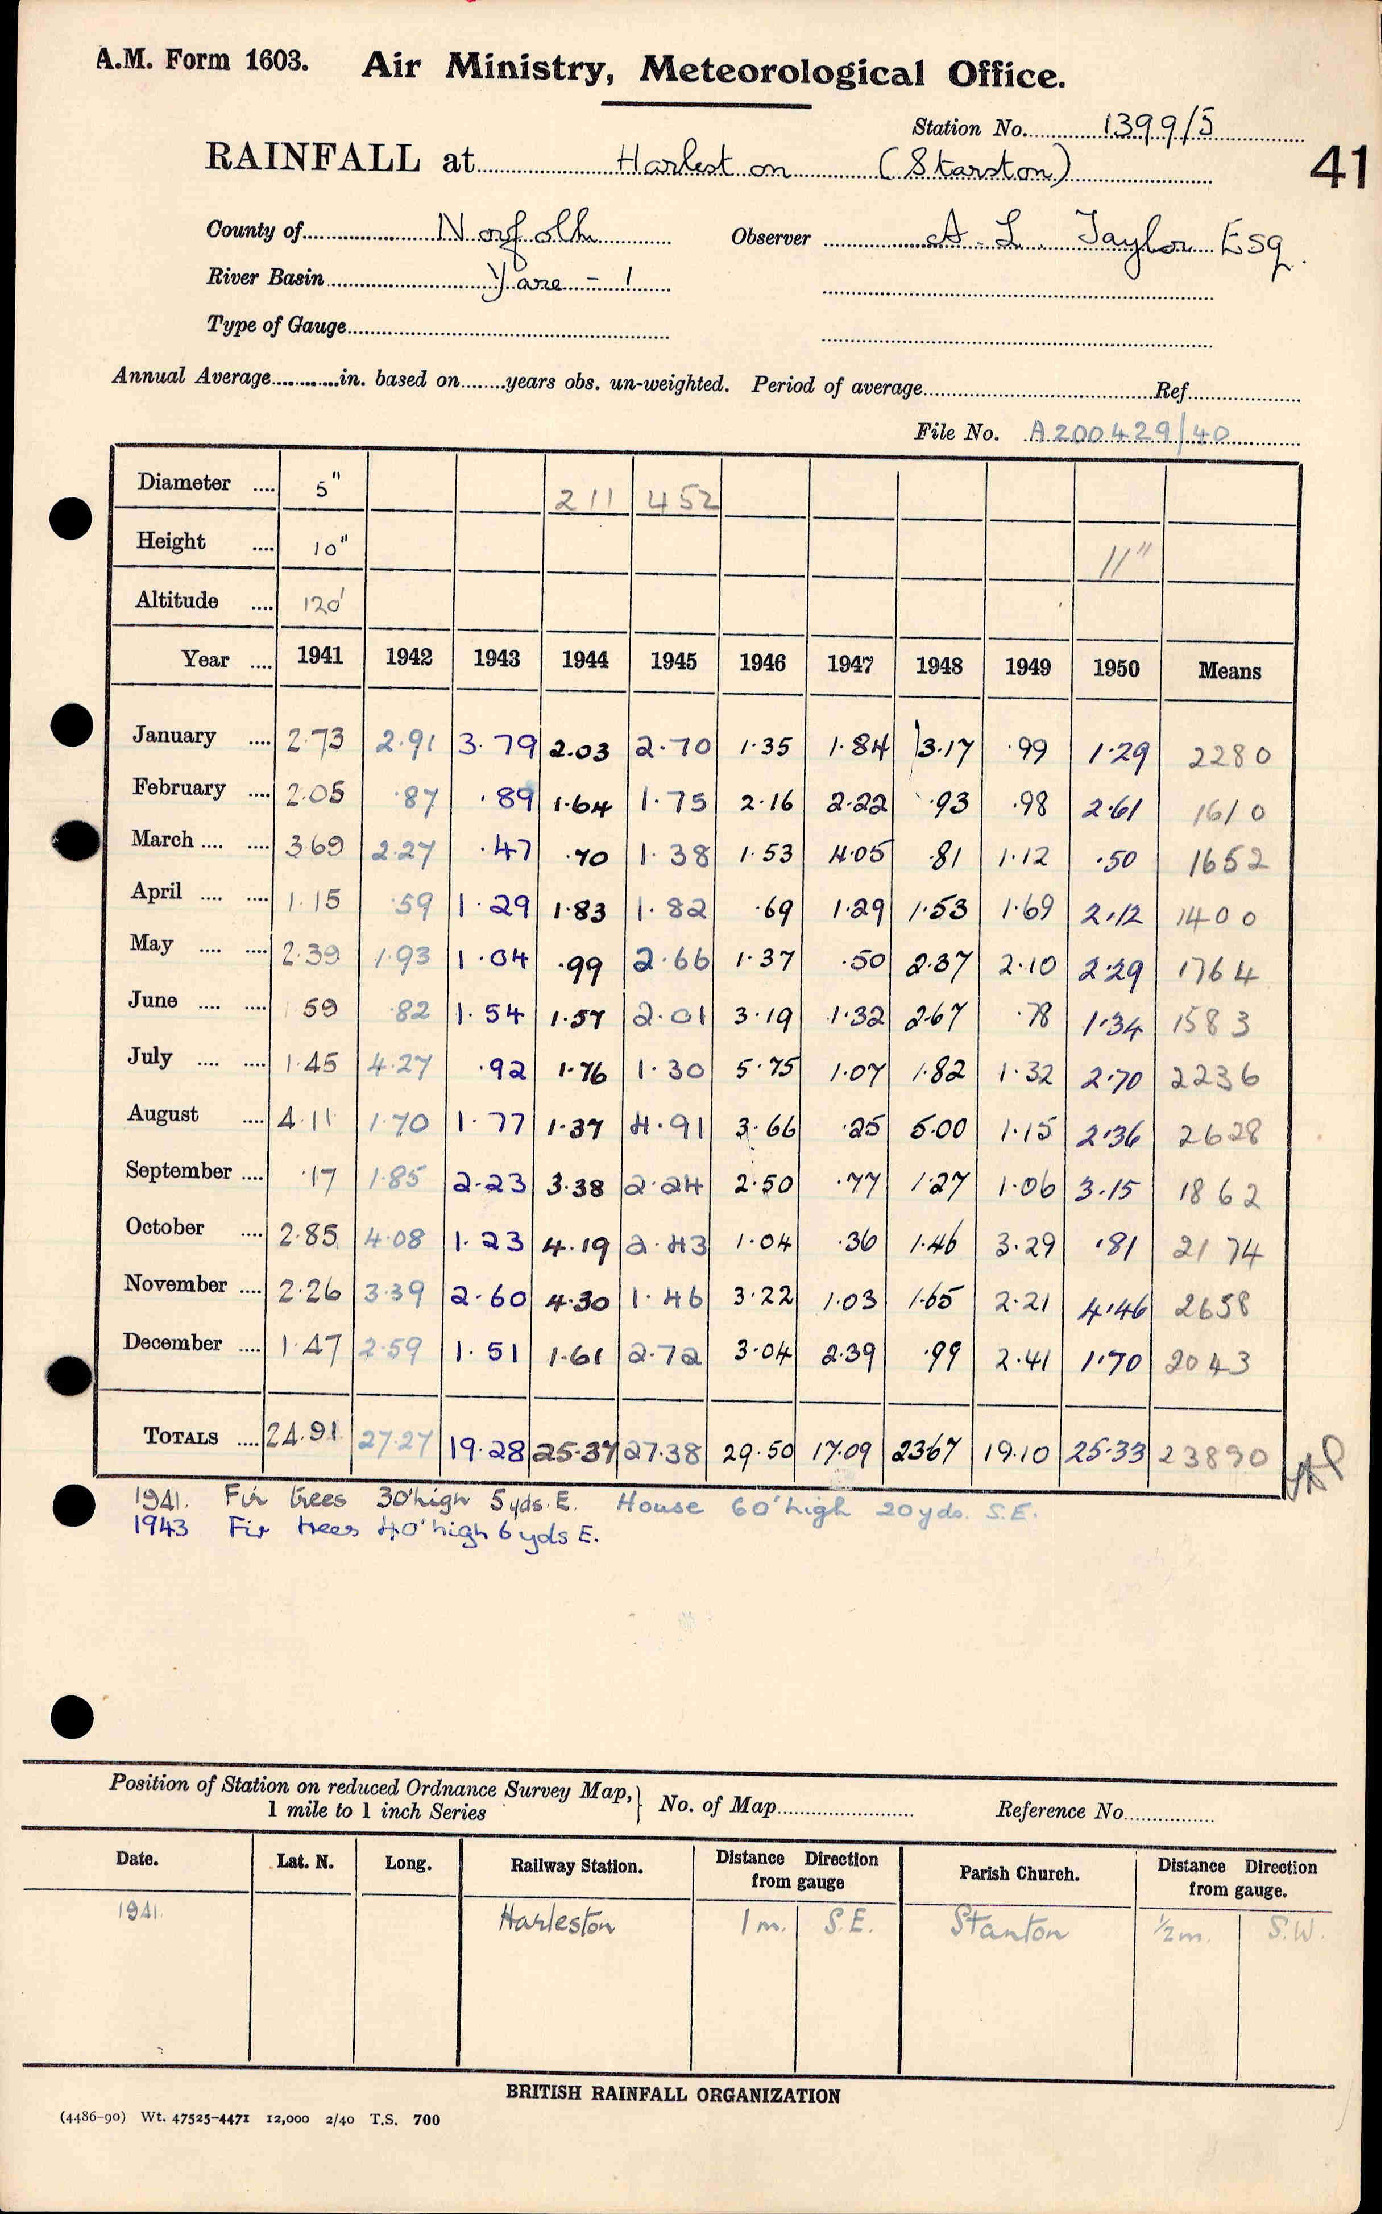 A.M. Form 1603. Air Ministry, Meteorological Office.
Station No. 1399/5
RAINFALL at Harleston (Starston)
41
County of Norfolk Observer A. L. Taylor Esq.
River Basin Yare - 1
Type of Gauge
Annual Average in. based on years obs. un-weighted. Period of average Ref.
File No. A200429/40
Diameter .... 5" 211 452
Height .... 10" 11"
Altitude .... 120'
Year .... 1941 1942 1943 1944 1945 1946 1947 1948 1949 1950 Means
January .... 2.73 2.91 3.79 2.03 2.70 1.35 1.84 3.17 .99 1.29 2280
February .... 2.05 .87 .89 1.64 1.75 2.16 2.22 .93 .98 2.61 1610
March .... .... 369 2.27 .47 .70 1.38 1.53 4.05 .81 1.12 .50 1652
April .... .... 1.15 .59 1.29 1.83 1.82 .69 1.29 1.53 1.69 2.12 1400
May .... .... 2.39 1.93 1.04 .99 2.66 1.37 .50 2.37 2.10 2.29 1764
June .... .... 59 .82 1.54 1.57 2.01 3.19 1.32 2.67 .78 1.34 1583
July .... .... 1.45 4.27 .92 1.76 1.30 5.75 1.07 1.82 1.32 2.70 2236
August .... 4.11 1.70 1.77 1.37 4.91 3.66 .25 5.00 1.15 2.36 2628
September .... .17 1.85 2.23 3.38 2.24 2.50 .77 1.27 1.06 3.15 1862
October .... 2.85 4.08 1.23 4.19 2.43 1.04 .36 1.46 3.29 .81 2174
November .... 2.26 3.39 2.60 4.30 1.46 3.22 1.03 1.65 2.21 4.46 2658
December .... 1.47 2.59 1.51 1.61 2.72 3.04 2.39 .99 2.41 1.70 2043
TOTALS .... 24.91 27.27 19.28 25.37 27.38 29.50 17.09 2367 19.10 25.33 23890
1941. Fir trees 30' high 5 yds. E. House 60' high 20 yds. S.E.
1943 Fir trees 40' high 6 yds E.
Position of Station on reduced Ordnance Survey Map, 1 mile to 1 inch Series } No. of Map Reference No.
Date. Lat. N. Long. Railway Station. Distance Direction from gauge Parish Church. Distance Direction from gauge.
1941. Harleston 1 m. S.E. Stanton ½ m. S.W.
BRITISH RAINFALL ORGANIZATION
(4486-90) Wt. 47525-4471 12,000 2/40 T.S. 700